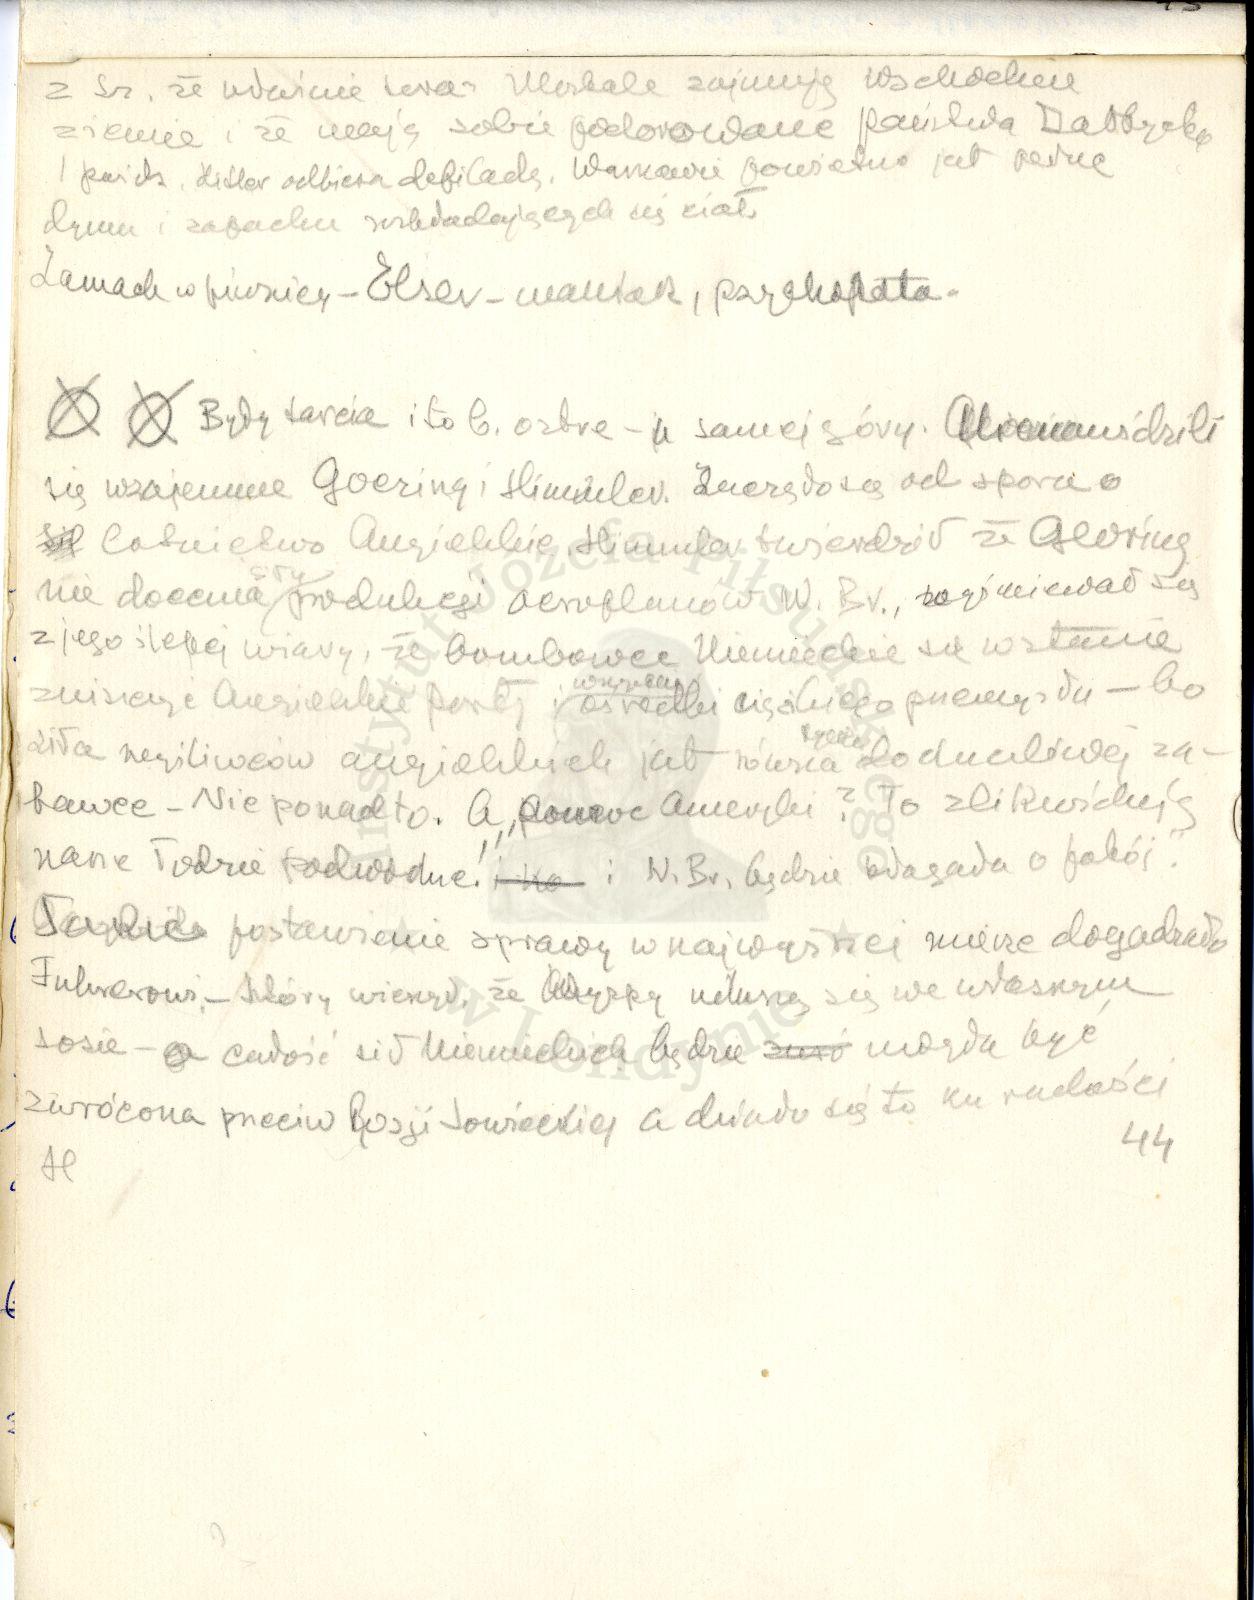 z Sz. że właśnie teraz Moskale zajmują wschodnie
ziemie i że mają sobie podarowane państwa Bałtyckie
1 paźdz. Hitler odbiera defiladę. Warszawie powietrze jest pełne
dymu i zapachu rozkładających się ciał.
Zamach w piwnicy – Elser – maniak, psychopata.
Były tarcia i to b. ostre – u samej góry. nienawidzili
się wzajemnie Goering i Himmler. Zaczęło się od sporu o
lotnictwo Angielskie. Himmler twierdził że Goering
nie docenia siły produkcji aeroplanów W. Br., wyśmiewał się
z jego ślepej wiary, że bombowce Niemieckie są w stanie
zniszczyć Angielskie porty i wszystkie ośrodki ciężkiego przemysłu – bo
siła myśliwców angielskich jest równa tylko dokuczliwej za-
bawce – Nic ponad to. A „pomoc Ameryki? To zlikwidują
nasze łodzie podwodne! i W. Br. będzie błagała o pokój".
Takie postawienie sprawy w najwyższej mierze dogadzało
Fuhrerowi – który wierzył, że Angicy uduszą się we własnym
sosie – a całość sił Niemieckich będzie mogła być
zwrócona przeciw Rosji Sowieckiej a działo się to ku radości
44